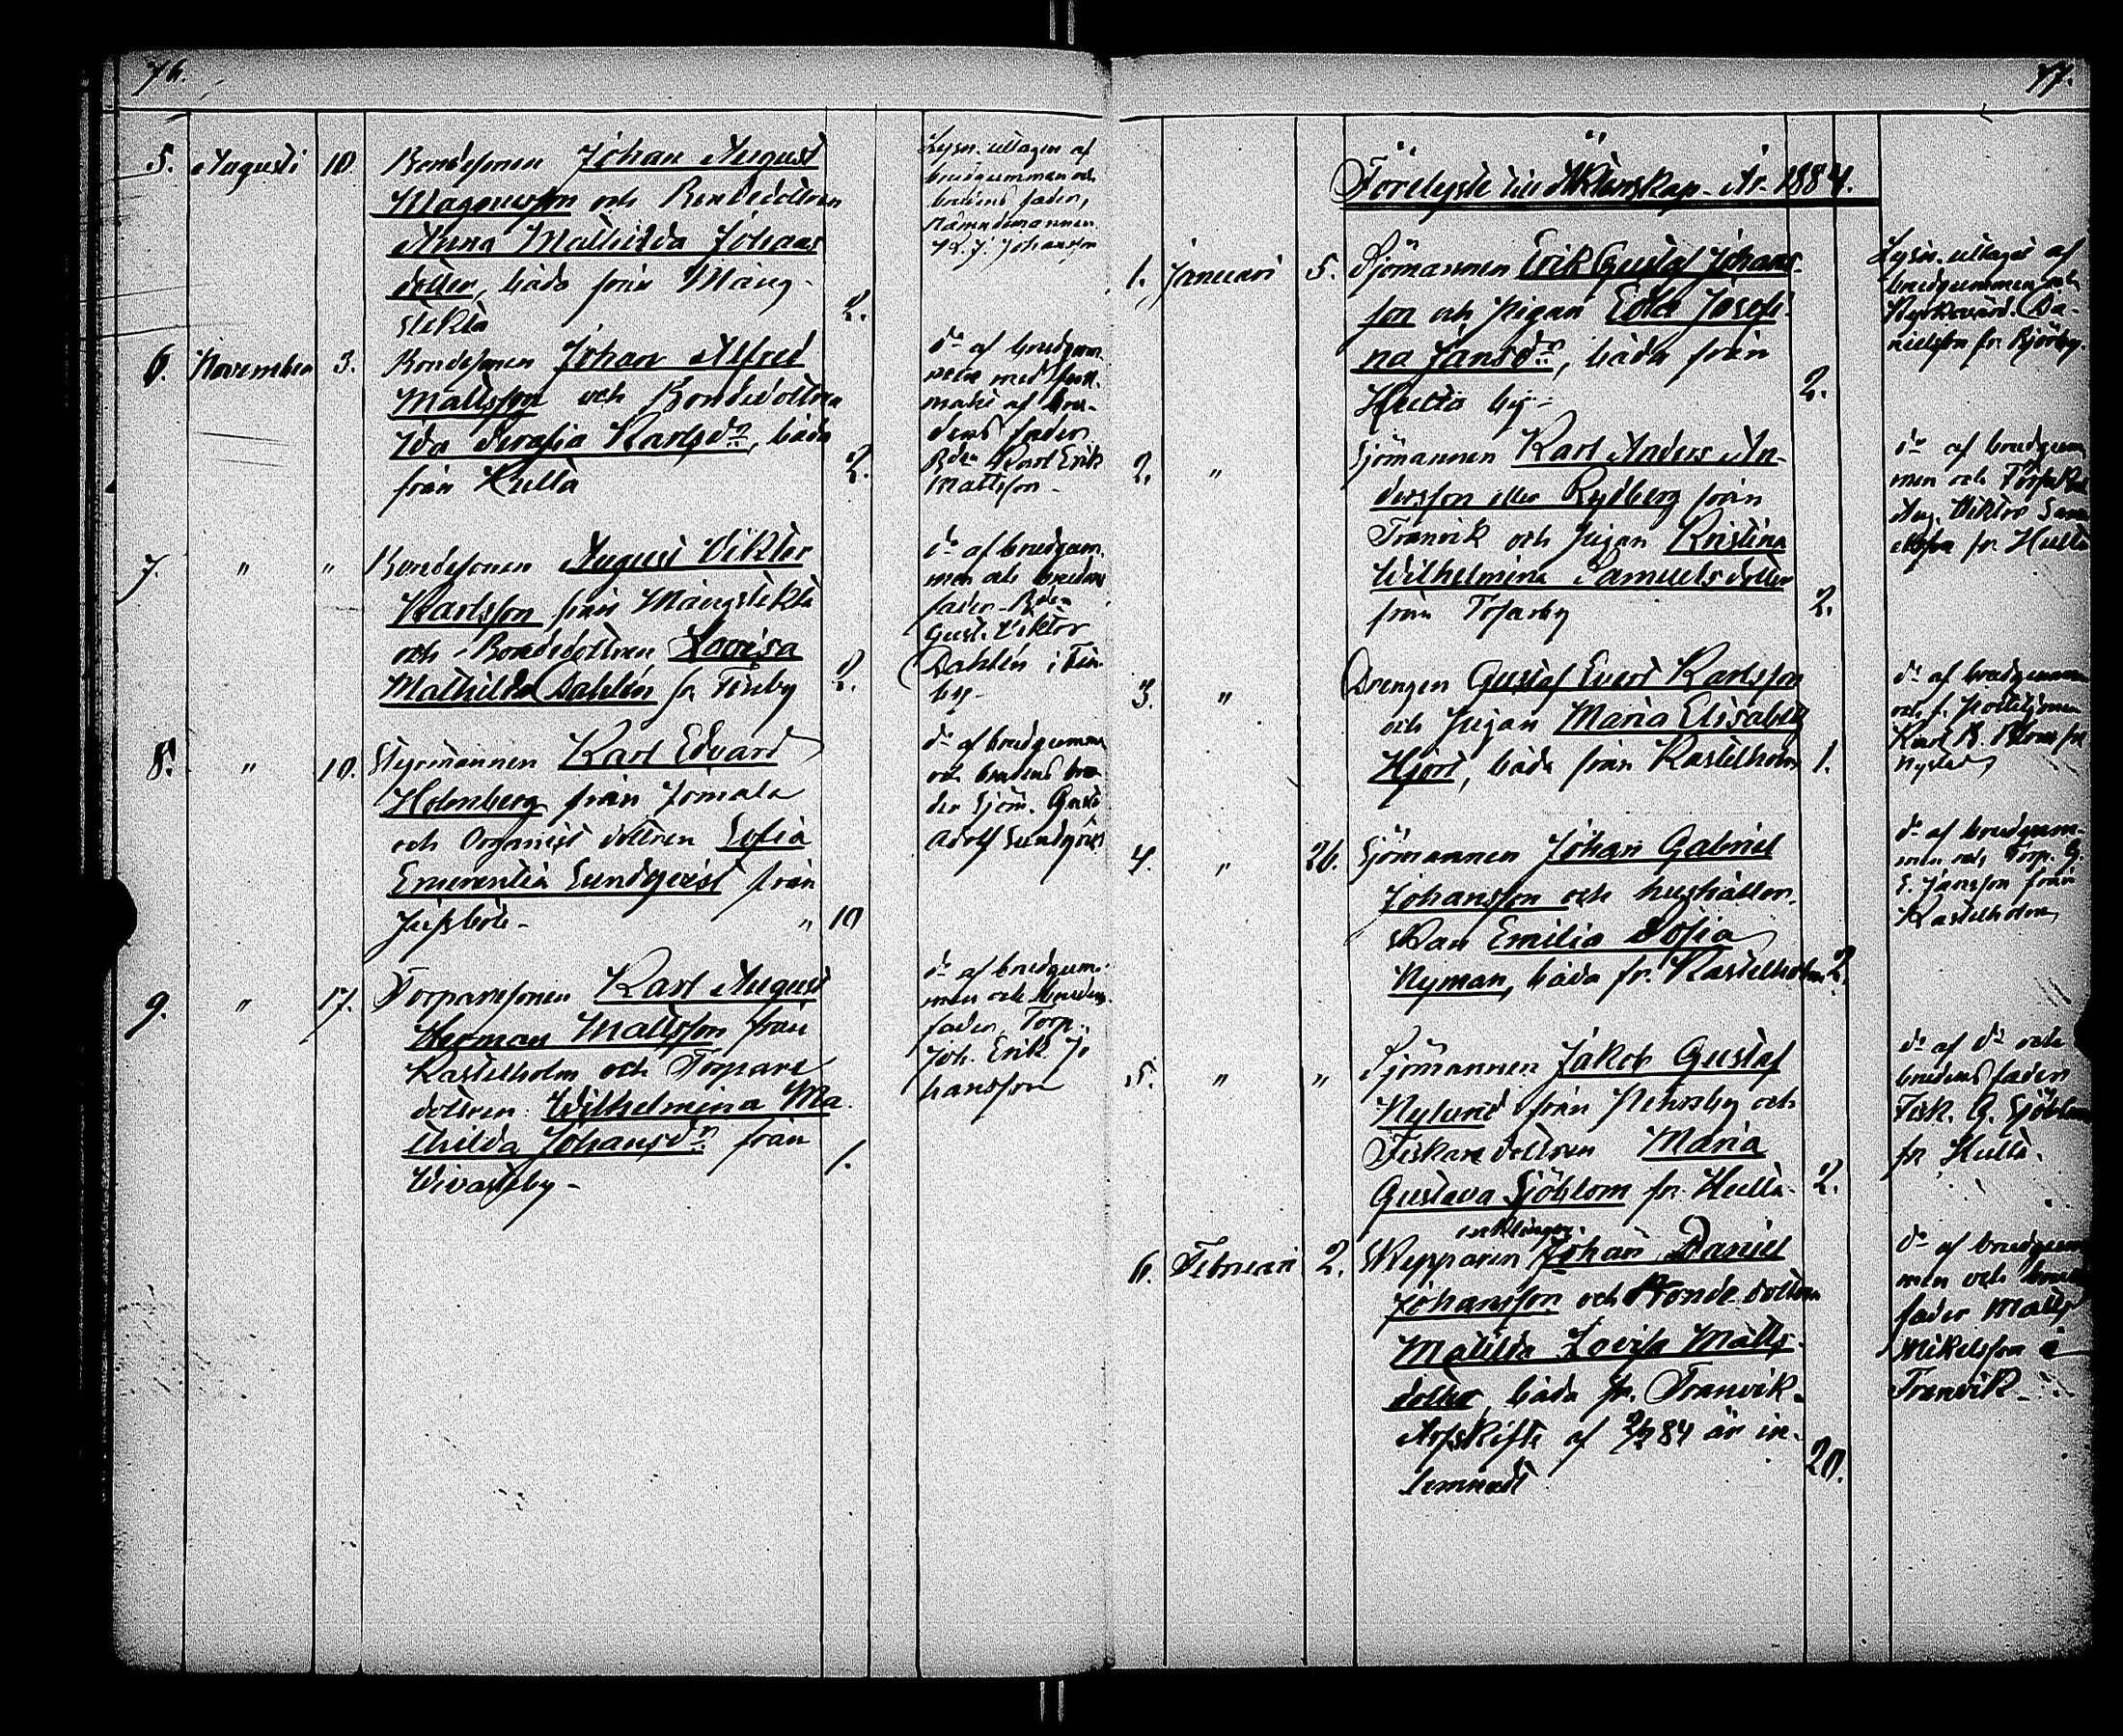 76.
5. Augusti 10. Bondesonen Johan August
Magnusson och Bondedottren
Anna Mathilda Johans
dotter, båda från Mång-
stekta 2.
Lysn. uttagen af
brudgummen och
brudens fader,
Nämndemannen
K. J. Johansson
6. November 3. Bondesonen Johan Alfred
Mattsson och Bondedottren
Ida Serafia Karlsdr, båda
från Hulta 2.
do af brudgum
men med full-
makt af bru-
dens fader
Bden Karl Erik
Mattsson -
7. " " Bondesonen August Viktor
Karlsson från Mångstekta
och Bondedottren Lovisa
Mathilda Dahlén fr Finby 2.
do af brudgum
men och brudens
fader Bden
Gust. Viktor
Dahlén i Fin-
by -
8. " 10. Styrmannen Karl Edvard
Holmberg från Jomala
och Organist dottren Sofia
Emerentia Lundqvist från
Jussböle - " 10
do af brudgumm
och brudens bro
der Sjöm. Gust.
Adolf Lundqvist
9. " 17. Torparesonen Karl August
Herman Mattsson från
Kastelholm och Torpare
dottren Wilhelmina Ma
thilda Johansdr från
Wivasteby - 1.
do af brudgum-
men och brudens
fader, Torp.
Joh. Erik Jo
hansson
77.
Förelyste till Äktenskap År 1884.
1. Januari 5. Sjömannen Erik Gustaf Johans-
son och Pigan Edla Josefi-
na Jansdr, båda från
Hulta by - 2.
Lysn. uttagit af
brudgummen och
Kyrkovärd. Da-
nielsson fr Björby.
2. " Sjömannen Karl Anders An-
dersson eller Rydberg från
Tranvik och Pigan Kristina
Wilhelmina Samuelsdotter
från Tosarby 2.
do af brudgum
men och
Aug. Viktor
fr Hulta
3. " Drengen Gustaf Evert Karlsson
och Pigan Maria Elisabeth
Hjort, båda från Kastelholm 1.
do af brudgummen
och f.
Karl B. Blom fr
Nystad
4. " 26. Sjömannen Johan Gabriel
Johansson och hushåller-
skan Emilia Sofia
Nyman, båda fr. Kastelholm 2.
do af brudgum-
men och Torp. G.
E. Jansson från
Kastelholm
5. " " Sjömannen Jakob Gustaf
Nylund från Pehrsby och
Fiskare dottren Maria
Gustava Sjöblom fr. Hulta - 2.
do af do och
brudens fader
Fisk. G. Sjöblom
fr Hulta.
6. Februari 2. Skepparen enklingen Johan Daniel
Johansson och Bonde dottren
Matilda Lovisa Matts-
dotter, båda fr. Tranvik -
Arfskifte af 2/2 84 är in-
lemnadt 20.
do af brudgum
men och brud
fader Matts
Mikelsson i
Tranvik -